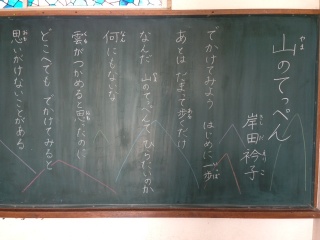 山のてっぺん
岸田衿子
でかけてみよう はじめに一歩
あとは だまって歩くだけ
なんだ 山のてっぺんて ひらたいのか
何にもないな
雲がつかめると思ったのに
どこへでも でかけてみると
思いがけないことがある